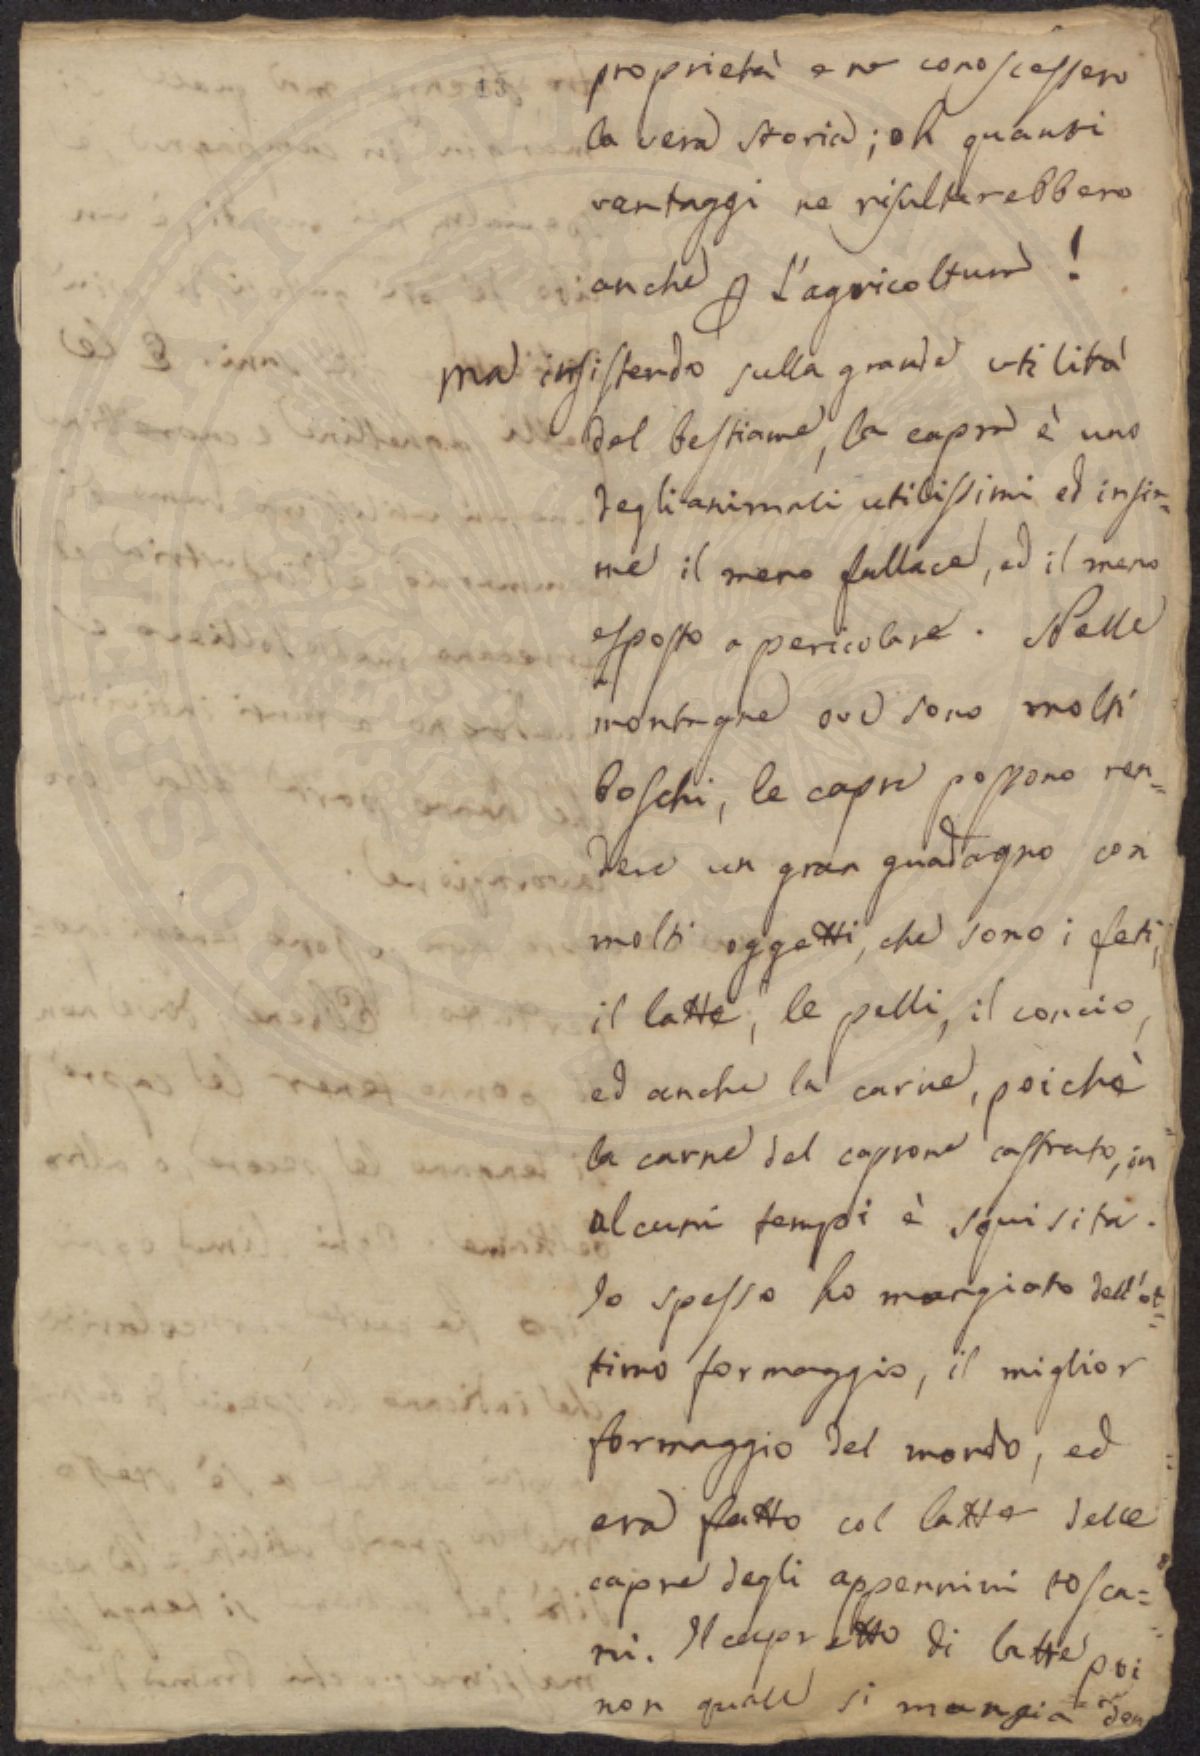 13.
proprietà e ne conoscessero
la vera storia; oh quanti
vantaggi ne risulterebbero
anche p l'agricoltura!
ma insistendo sulla grande utilità
del bestiame, la capra è uno
degli animali utilissimi ed insie=
me il meno fallace, ed il meno
esposto a pericolare. Nelle
montagne ove sono molti
boschi, le capre possono ren=
dere un gran guadagno con
molti oggetti, che sono i feti,
il latte, le pelli, il concio,
ed anche la carne, poichè
la carne del caprone castrato, in
alcuni tempi è squisita.
Io spesso ho mangiato dell'ot=
timo formaggio, il miglior
formaggio del mondo, ed
era fatto col latte delle
capre degli appennini tosca=
ni. Il capretto di latte poi
non quale si mangia